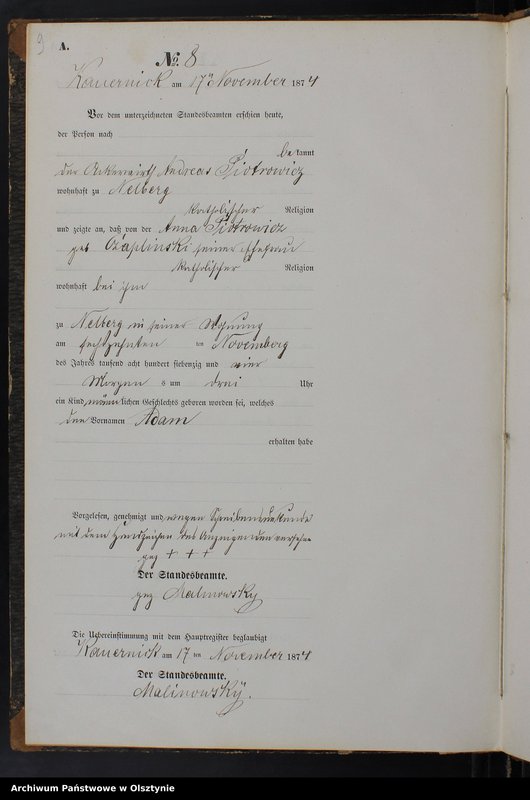 9
A.
No. 8
Kauernick am 17ten November 1874
Vor dem unterzeichneten Standesbeamten erschien heute,
der Person nach
bekannt
der Ackerwirth Andreas Piotrowicz
wohnhaft zu Nelberg
Katholischer Religion
und zeigte an, daß von der Anna Piotrowicz
geb Czaplinski seiner Ehefrau
Katholischer Religion
wohnhaft bei ihm
zu Nelberg in seiner Wohnung
am sechszehnten ten November
des Jahres tausend acht hundert siebenzig und vier
Morgen s um drei Uhr
ein Kind männlichen Geschlechts geboren worden sei, welches
den Vornamen Adam
erhalten habe
Vorgelesen, genehmigt und wegen Schreibensunkunde
mit dem Handzeichen des Anzeigenden versehen
gez + + +
Der Standesbeamte.
gez Malinowsky
Die Uebereinstimmung mit dem Hauptregister beglaubigt
Kauernick am 17 ten November 1874
Der Standesbeamte.
Malinowsky.
Archiwum Państwowe w Olsztynie